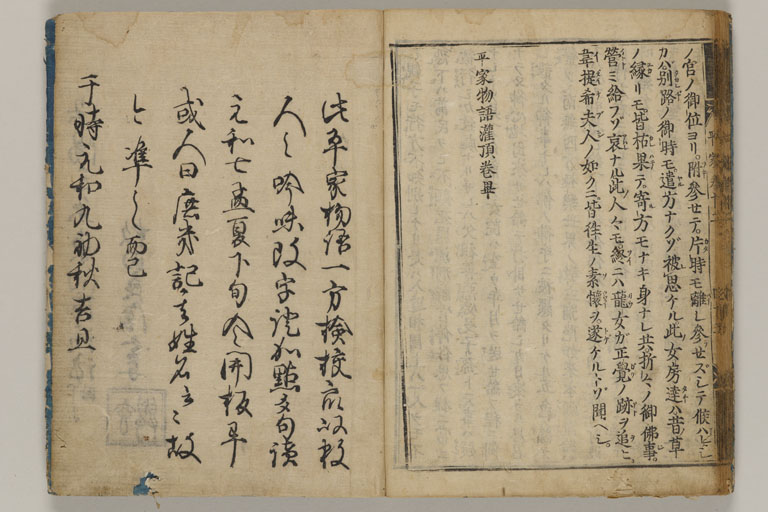 ノ宮ノ御位ヨリ。附參セテ。片時モ離レ參セズシテ候ハレシ
カバ別路ノ御時モ遣方ナクゾ被思ケル此女房達ハ昔ノ草
ノ縁リモ皆枯果テ寄方モナキ身ナレ共折々ノ御佛事。
營ミ給フゾ哀ナル此人々モ終ニハ龍女ガ正覺ノ跡ヲ追ヒ。
韋提希夫人ノ如クニ皆往生ノ素懷ヲ遂ケルトゾ聞ヘシ。
平家物語灌頂卷畢
此平家物語一方檢校
人々吟味改字證加點
元和七孟夏下旬令開板畢
或人曰庶幾記其姓名云々故
今準之而已
于時元和九初秋吉旦